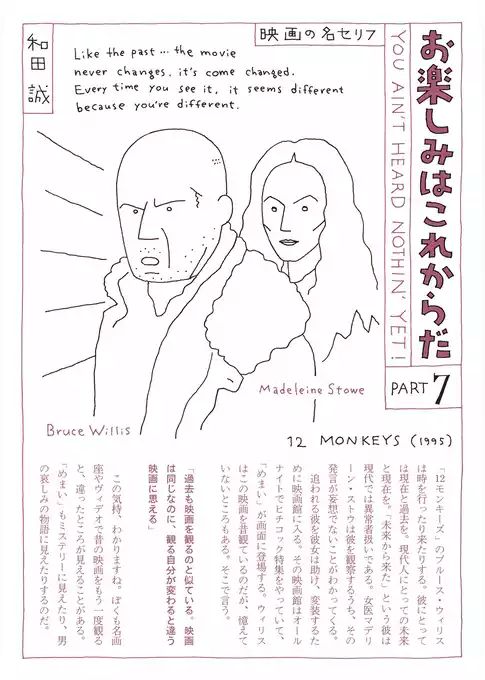 お楽しみはこれからだ
YOU AIN'T HEARD NOTHIN' YET!
PART 7
映画の名セリフ
和田 誠
Like the past … the movie
never changes, it's come changed.
Every time you see it, it seems different
because you're different.
Madeleine Stowe
Bruce Willis
12 MONKEYS (1995)
「12モンキーズ」のブルース・ウィリス
は時を行ったり来たりする。彼にとって
は現在と過去を。現代人にとっての未来
と現在を。「未来から来た」という彼は
現代では異常者扱いである。女医マデリ
ーン・ストウは彼を観察するうち、その
発言が妄想でないことがわかってくる。
追われる彼を彼女は助け、変装するた
めに映画館に入る。その映画館はオール
ナイトでヒチコック特集をやっていて、
「めまい」が画面に登場する。ウィリス
はこの映画を昔観ているのだが、憶えて
いないところもある。そこで言う。
「過去も映画を観るのと似ている。映画
は同じなのに、観る自分が変わると違う
映画に思える」
この気持、わかりますね。ぼくも名画
座やヴィデオで昔の映画をもう一度観る
と、違ったところが見えることがある。
「めまい」もミステリーに見えたり、男
の哀しみの物語に見えたりするのだ。